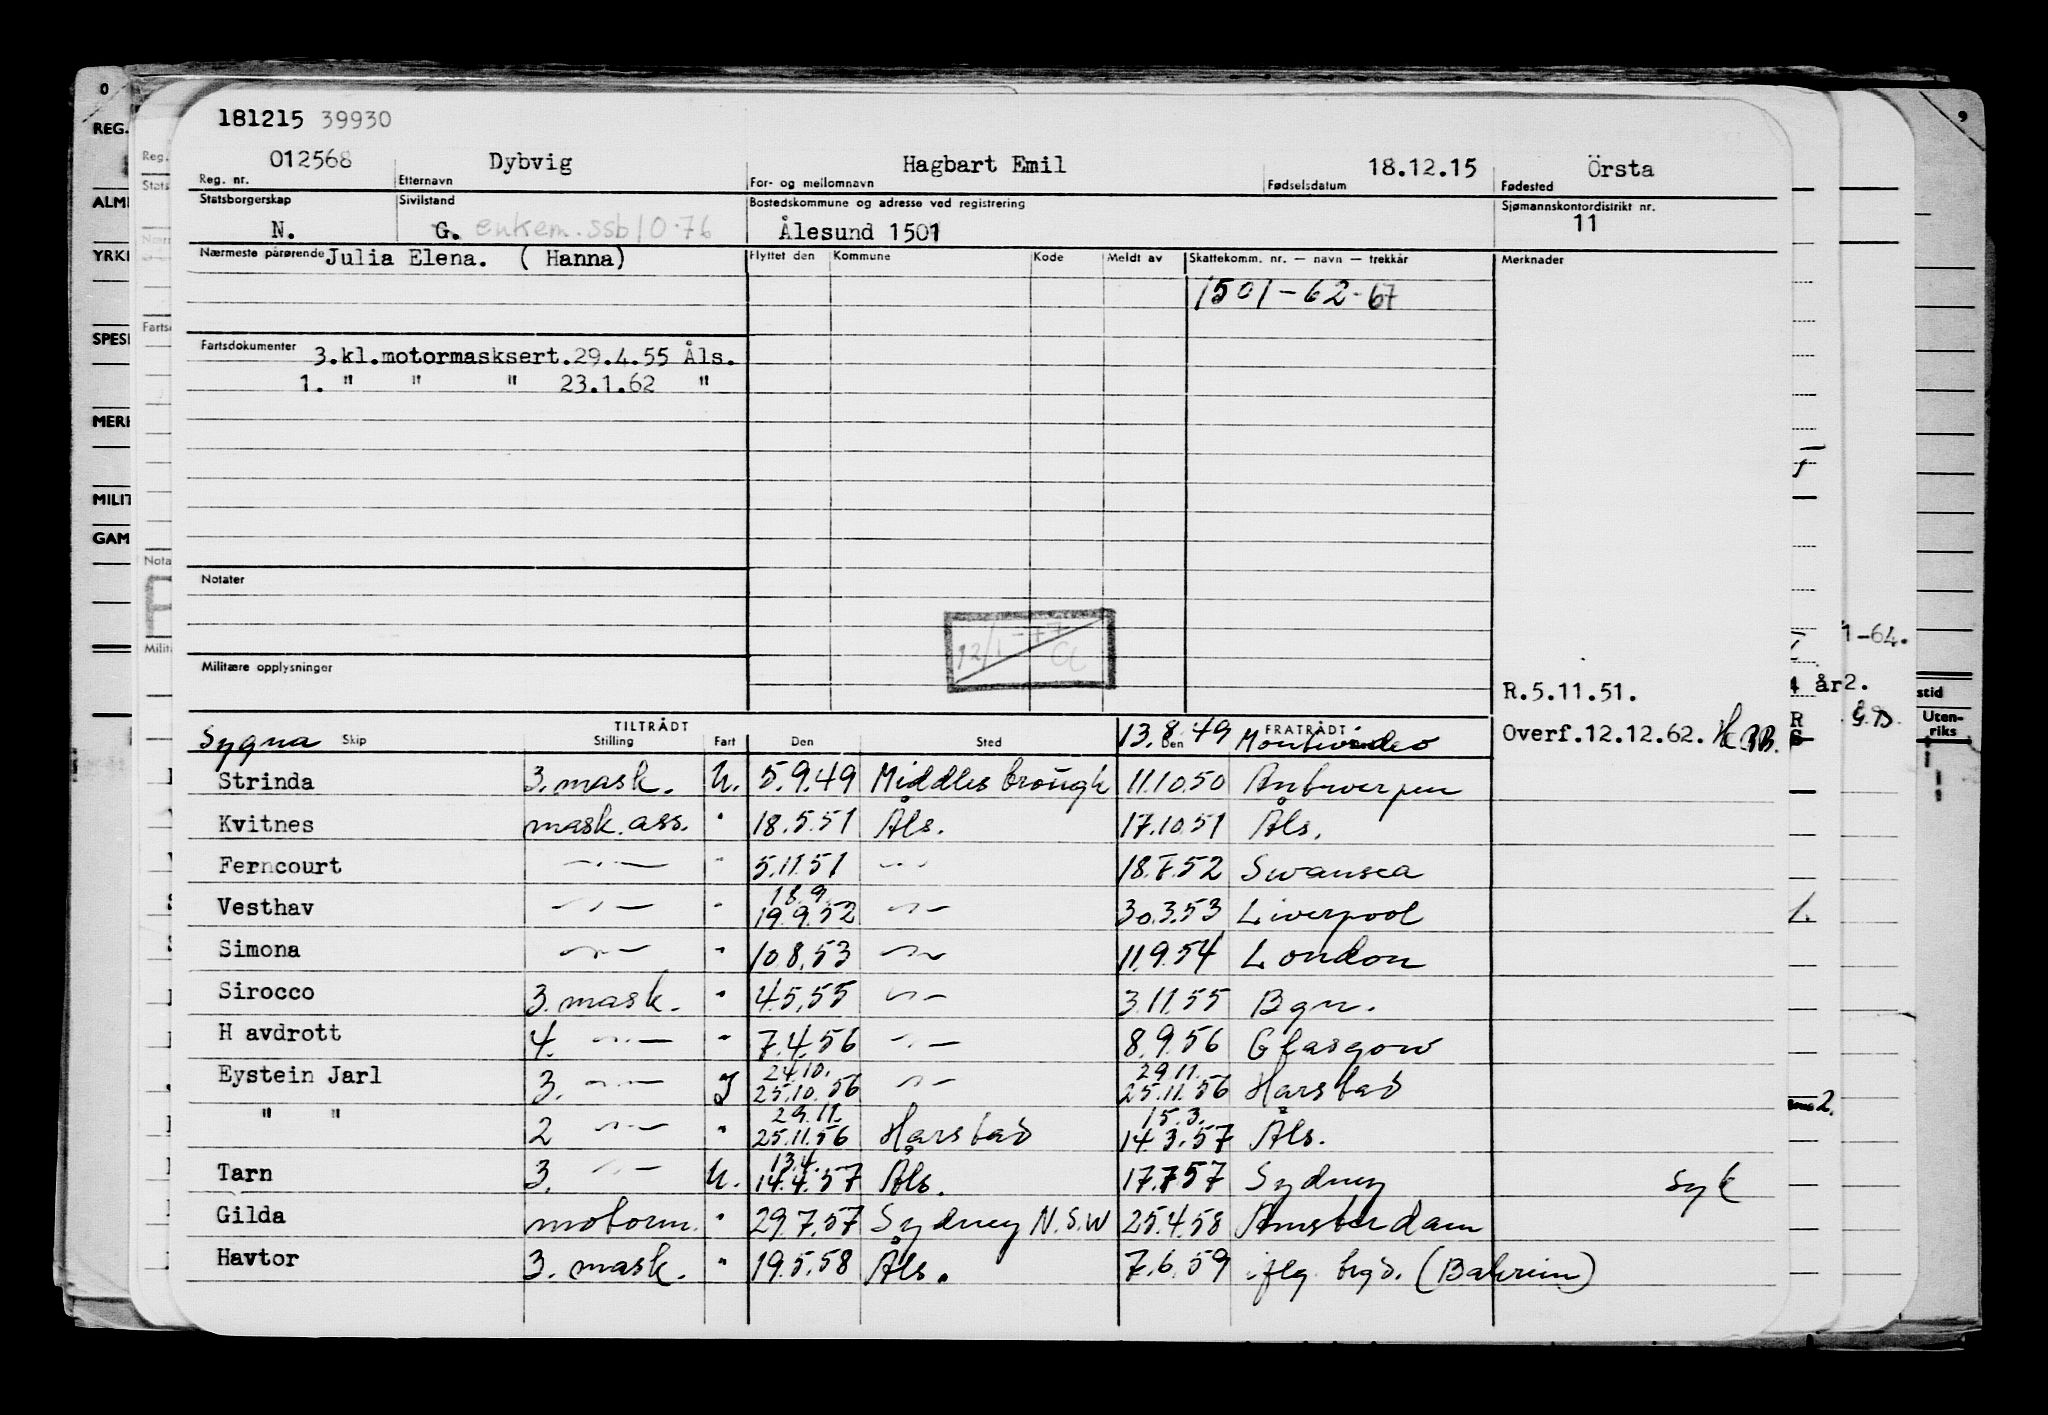 181215 39930
012568 Dybvig Hagbart Emil 18.12.15 Örsta
Reg. nr. Etternavn For- og mellomnavn Fødselsdatum Fødested
Statsborgerskap Sivilstand Bostedskommune og adresse ved registrering Sjømannskontordistrikt nr.
N. G. enkem. ssb 10.76 Ålesund 1501 11
Nærmeste pårørende Julia Elena. ( Hanna) Flyttet den Kommune Kode Meldt av Skattekomm. nr. — navn — trekkår Merknader
1501-62-67
Fartsdokumenter 3.kl.motormasksert.29.4.55 Åls.
1. " " " 23.1.62 "
Notater
12/1-77
Militære opplysninger
R.5.11.51.
TILTRÅDT FRATRÅDT
Sygna Skip Stilling Fart Den Sted 13.8.49 Den Montivideo Overf.12.12.62. HBB.
Strinda 3. mask. U. 5.9.49 Middlesbrough 11.10.50 Antwerpen
Kvitnes mask. ass. " 18.5.51 Åls. 17.10.51 Åls.
Ferncourt —"— " 5.11.51 —"— 18.7.52 Swansea
18.9.
Vesthav —"— " 19.9.52 —"— 30.3.53 Liverpool
Simona —"— " 10.8.53 —"— 11.9.54 London
Sirocco 3. mask. " 4.5.55 —"— 3.11.55 Bgn.
H avdrott 4. —"— " 7.4.56 —"— 8.9.56 Glasgow
24.10. 29.11.
Eystein Jarl 3. —"— I 25.10.56 —"— 25.11.56 Harstad
29.11. 15.3.
" " 2 —"— " 25.11.56 Harstad 14.3.57 Åls.
13.4.
Tarn 3. —"— U. 14.4.57 Åls. 17.7.57 Sydney syk
Gilda motorm. " 29.7.57 Sydney N.S.W 25.4.58 Amsterdam
Havtor 3. mask. " 19.5.58 Åls. 7.6.59 iflg. brgd. (Bahrein)
0
REG.
ALM
YRK
SPES
MERK
MILIT
GAM
Reg.
Stats
Farts
Nota
Milit
9
1-64.
år 2.
stid
Uten-
riks
1.
2.